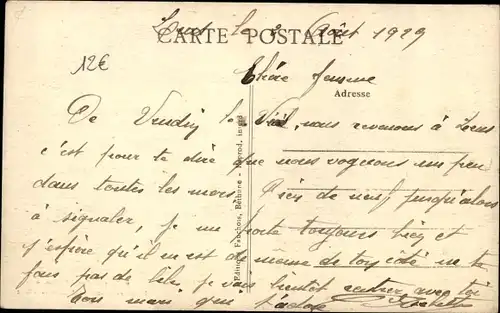 le 2 Août 1929
CARTE POSTALE
12€
Chère femme
Adresse
De Vendin le Vieil, nous revenons à Lens
c'est pour te dire que nous voguons un peu
dans toutes les mers. Rien de neuf jusqu'alors
à signaler, je me porte toujours bien et
j'espère qu'il en est de même de ton côté ne te
fais pas de bile, je vais bientôt rentrer avec toi
Ton mari que t'adore
Edition Fauchois, Béthune - Reprod. interd.